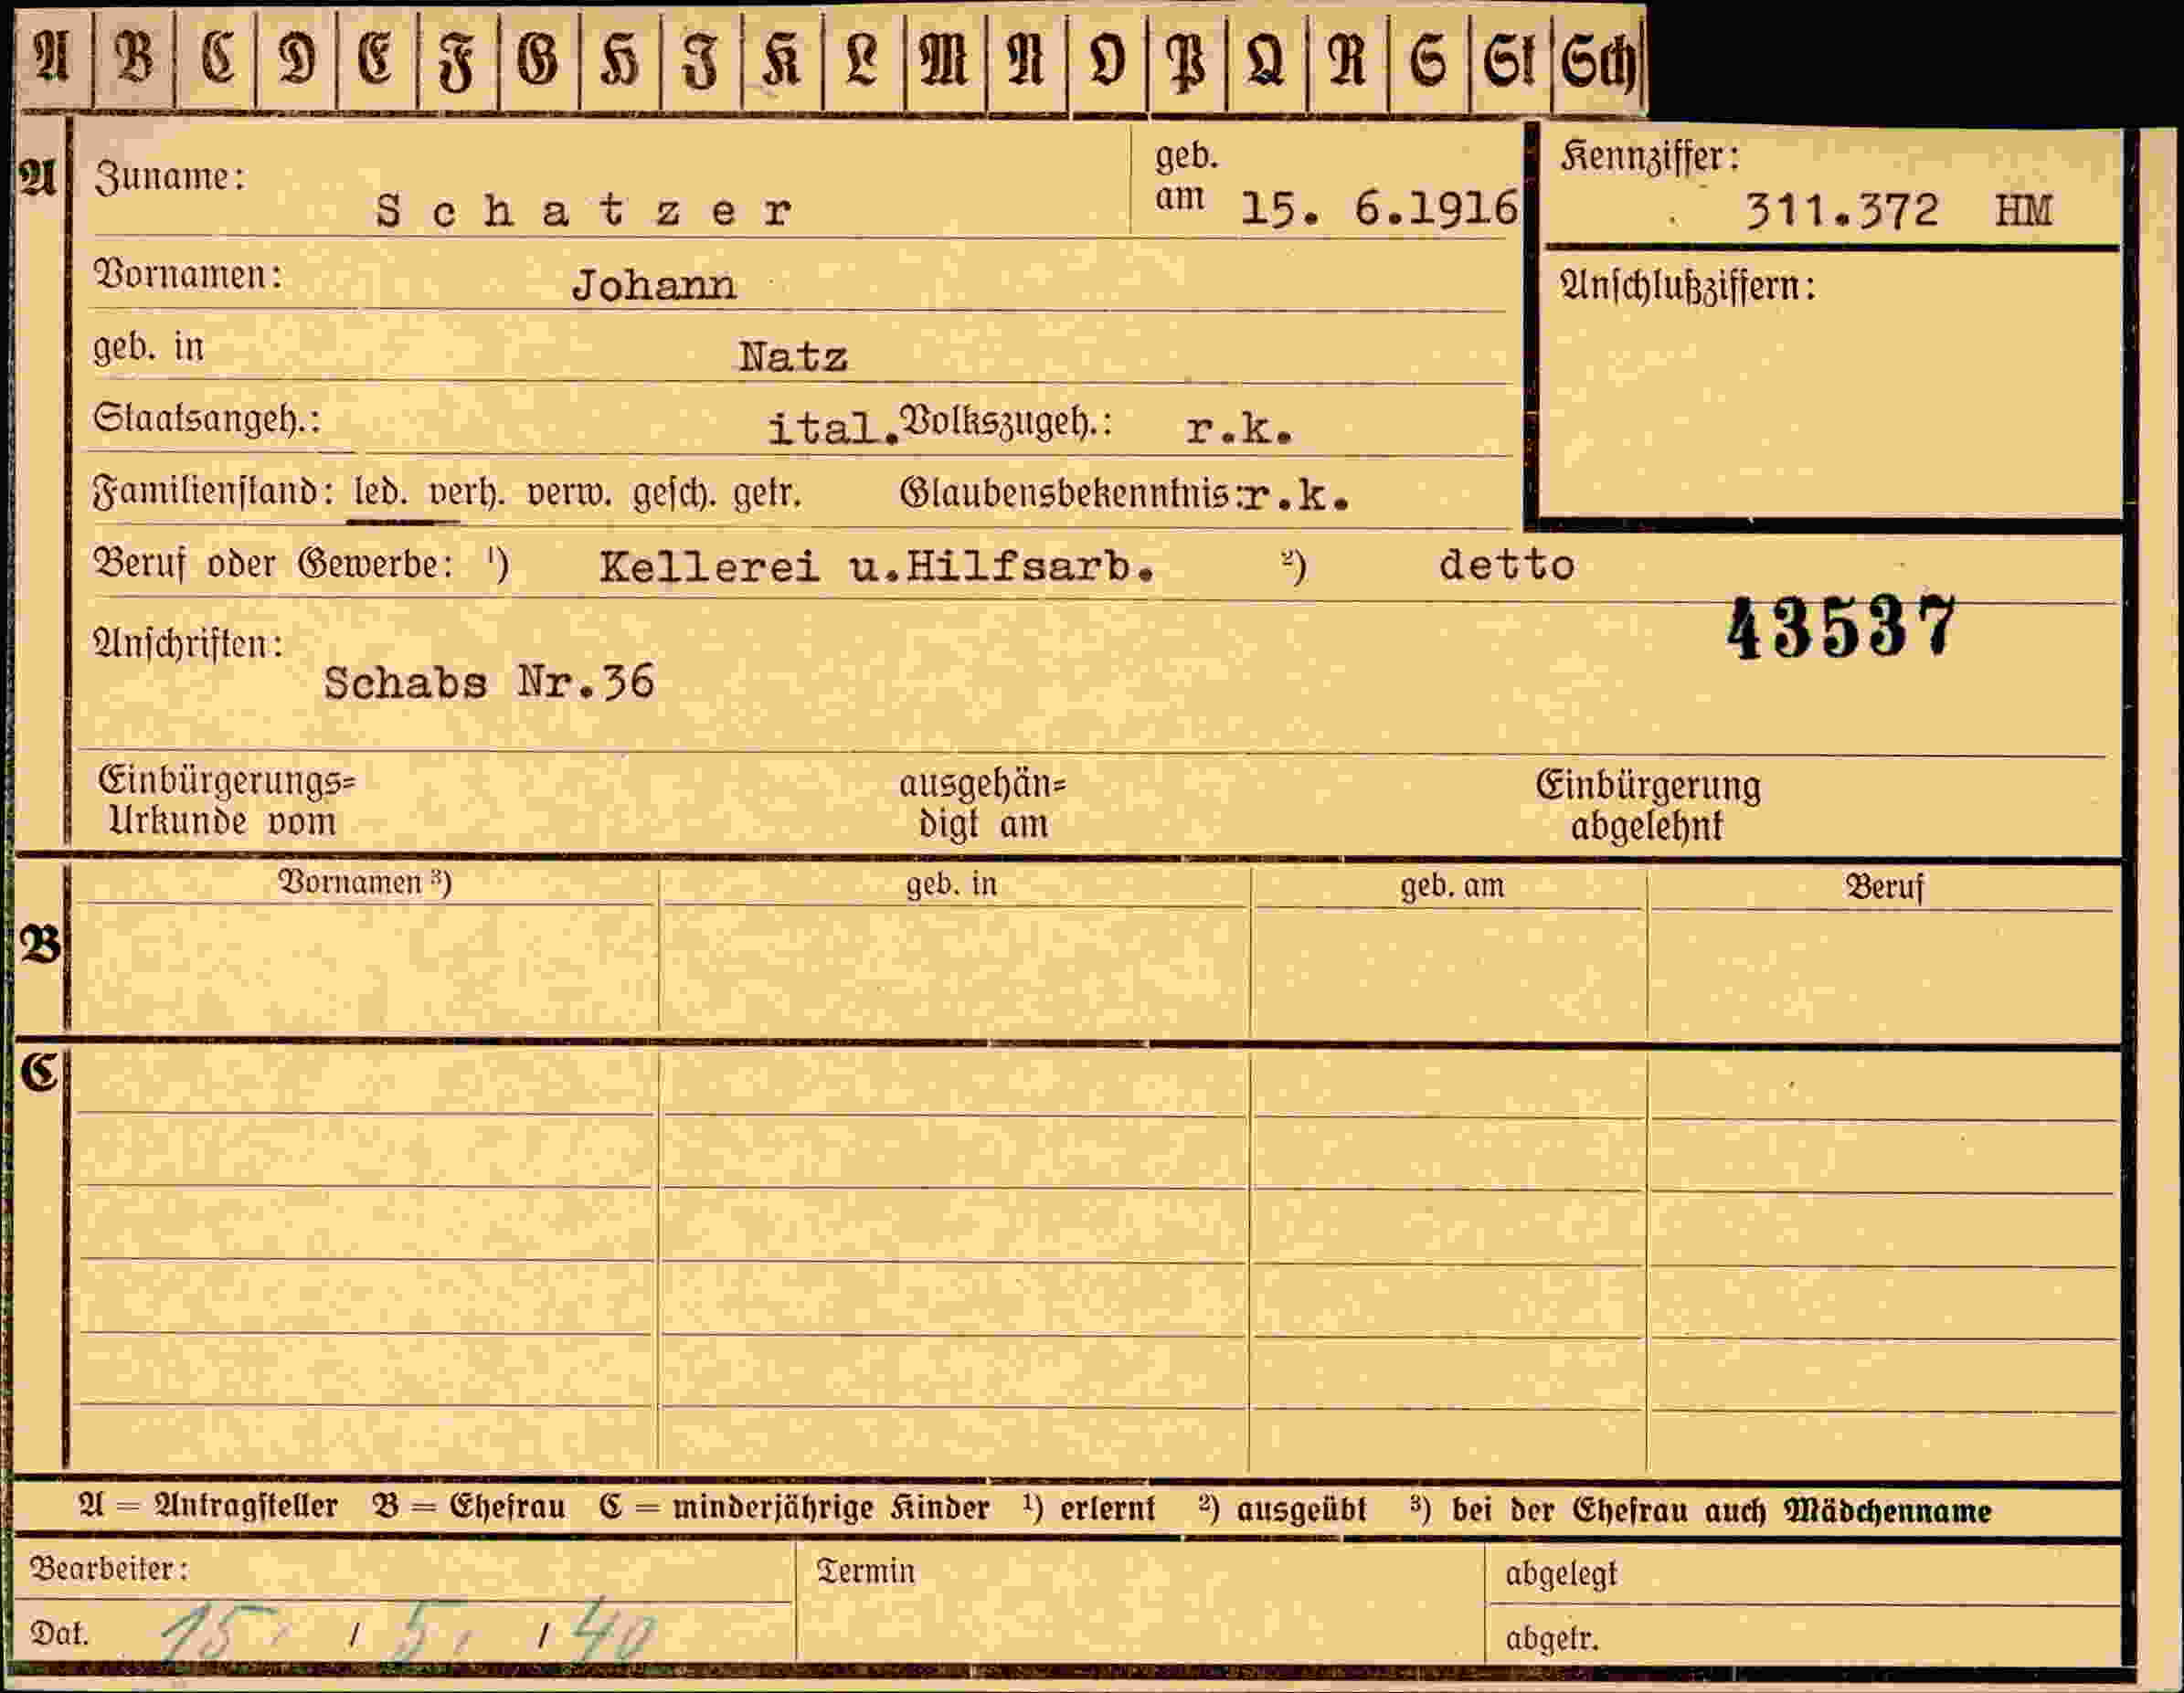 A B C D E F G H I K L M N O P Q R S St Sch
A Zuname: Schatzer geb. am 15. 6.1916 Kennziffer: 311.372 HM
Vornamen: Johann Anschlußziffern:
geb. in Natz
Staatsangeh.: ital. Volkszugeh.: r.k.
Familienstand: led. verh. verw. gesch. getr. Glaubensbekenntnis: r.k.
Beruf oder Gewerbe: 1) Kellerei u.Hilfsarb. 2) detto
43537
Anschriften:
Schabs Nr.36
Einbürgerungs= ausgehän= Einbürgerung
Urkunde vom digt am abgelehnt
B Vornamen 3) geb. in geb. am Beruf
C
A = Antragsteller B = Ehefrau C = minderjährige Kinder 1) erlernt 2) ausgeübt 3) bei der Ehefrau auch Mädchenname
Bearbeiter: Termin abgelegt
Dat. 15. / 5. / 40 abgetr.